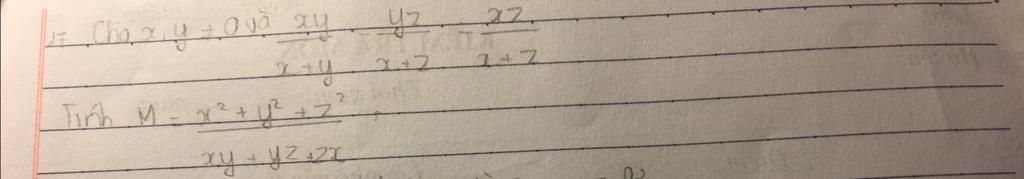 Cho x, y ≠ 0 và xy/(x+y) yz/(x+z) xz/(x+z)
Tính M = (x² + y² + z²)/(xy + yz + zx)